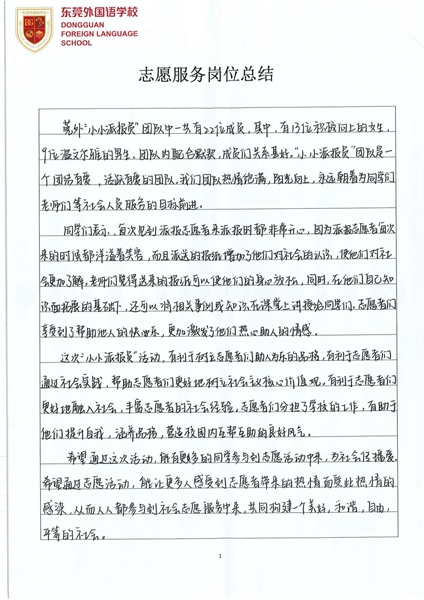 东莞外国语学校
DONGGUAN
FOREIGN LANGUAGE
SCHOOL
志愿服务岗位总结
莞外“小小派报员”团队中一共有22位成员,其中,有13位积极向上的女生,
9位温文尔雅的男生,团队内配合默契,成员们关系甚好。“小小派报员”团队是一
个团结有爱,活跃有爱的团队。我们团队热情饱满,阳光向上,永远朝着为同学们
老师们等社会人员服务的目标前进。
同学们表示,每次见到派报志愿者来派报时都非常开心,因为派报志愿者每次
来的时候都洋溢着笑容,而且派送的报纸增加了他们对社会的认识,使他们对社
会更加了解。老师们觉得送来的报纸可以使他们的身心放松,同时,在他们自己知
识面拓展的基础下,还可以将相关事例或知识在课堂上讲授给同学们。志愿者们
享受到了帮助他人的快乐,更加激发了他们热心助人的情感。
这次“小小派报员”活动,有利于树立志愿者们助人为乐的品格,有利于志愿者们
通过社会实践,帮助志愿者们更好地树立社会主义核心价值观,有利于志愿者们
更好地融入社会,丰富志愿者的社会经验。志愿者们分担了学校的工作,有助于
他们提升自我,涵养品格,营造校园内互帮互助的良好风气。
希望通过这次活动,能有更多的同学参与到志愿活动中来,为社会
希望通过志愿活动,能让更多人感受到志愿者带来的热情而受此热情的
感染,从而人人都参与到社会志愿服务中来,共同构建个美好,和谐,自由,
平等的社会。
1